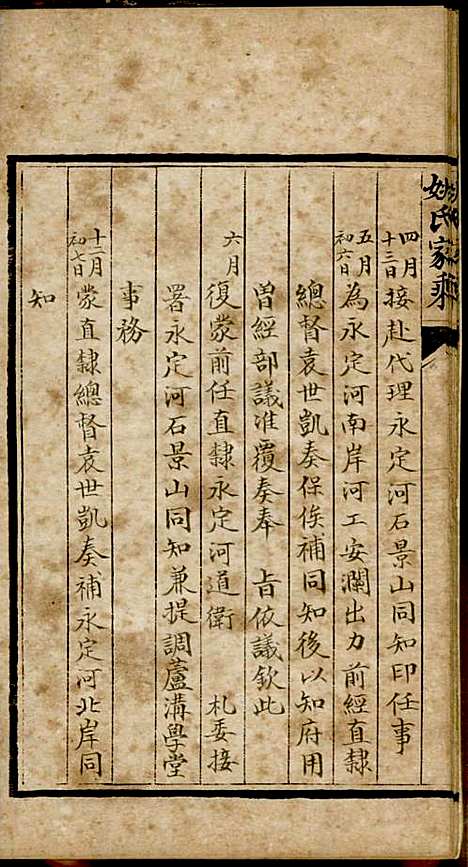 姚氏家乘
四月十三日接赴代理永定河石景山同知印任事
五月初六日為永定河南岸河工安瀾出力前經直隸
總督袁世凱奏保俟補同知後以知府用
曾經部議准覆奏奉 旨依議欽此
六月復蒙前任直隸永定河道衛 札委接
署永定河石景山同知兼提調蘆溝學堂
事務
十二月初七日蒙直隸總督袁世凱奏補永定河北岸同
知